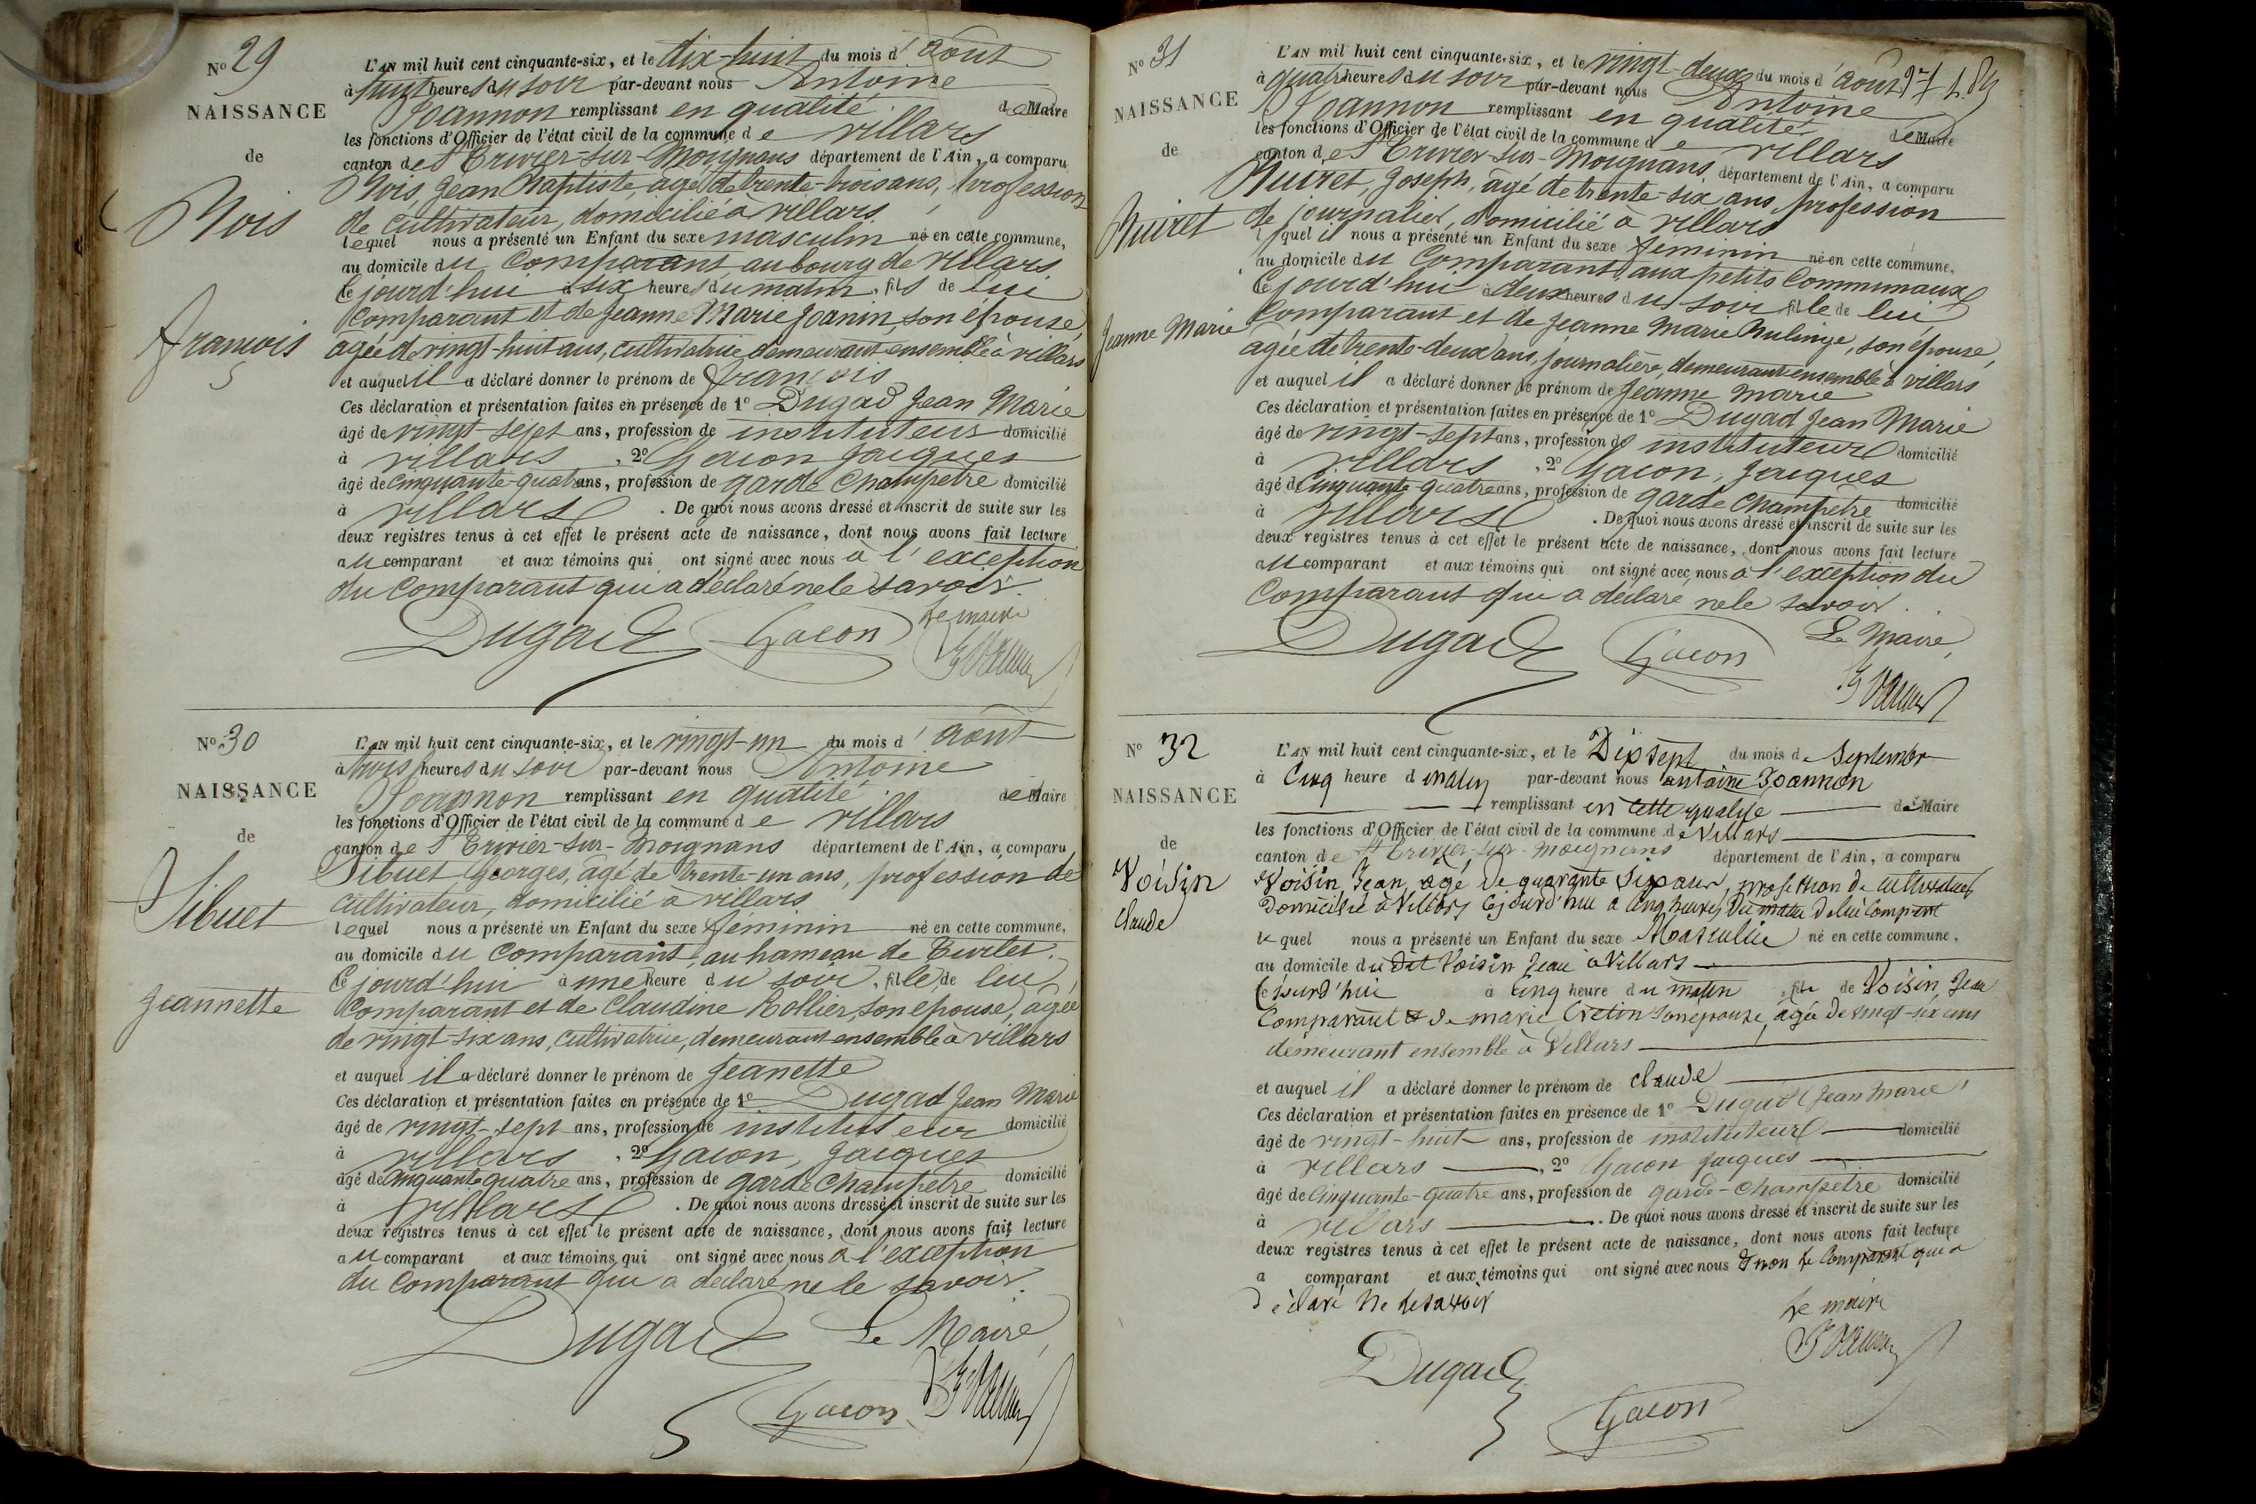 N° 29
NAISSANCE
de
Nois
François
L'AN mil huit cent cinquante-six, et le dix-huit du mois d'août
à huit heures du soir par-devant nous Antoine
Joannon remplissant en qualité de Maire
les fonctions d'Officier de l'état civil de la commune de villars
canton de St Trivier-sur-Moignans département de l'Ain, a comparu
Nois, Jean Baptiste, agé de trente-trois ans, profession
de cultivateur, domicilié à villars,
lequel nous a présenté un Enfant du sexe masculin né en cette commune,
au domicile du comparant au bourg de villars
Ce jourd'hui à six heures du matin, fils de lui
Comparant et de Jeanne Marie Joanin, son épouse
agée de vingt-huit ans, cultivatrice, demeurant ensemble à villars
et auquel il a déclaré donner le prénom de françois
Ces déclaration et présentation faites en présence de 1° Dugad Jean Marie
âgé de vingt-sept ans, profession de instituteur domicilié
à villars, 2° Gacon Jacques
âgé de cinquante-quatre ans, profession de garde champêtre domicilié
à villars. De quoi nous avons dressé et inscrit de suite sur les
deux registres tenus à cet effet le présent acte de naissance, dont nous avons fait lecture
au comparant et aux témoins qui ont signé avec nous à l'exception
du comparant qui a déclaré ne le savoir.
Le maire
Dugad Gacon Joannon
N° 30
NAISSANCE
de
Sibuet
Jeannette
L'AN mil huit cent cinquante-six, et le vingt-un du mois d'août
à trois heures du soir par-devant nous Antoine
Joannon remplissant en qualité de Maire
les fonctions d'Officier de l'état civil de la commune de villars
canton de St Trivier-sur-Moignans département de l'Ain, a comparu
Sibuet Georges, âgé de trente-un ans, profession de
cultivateur, domicilié à villars
lequel nous a présenté un Enfant du sexe féminin né en cette commune,
au domicile du comparant, au hameau de Turlet.
Ce jourd'hui à une heure du soir, fille de lui
comparant et de Claudine Rollier, son épouse, agée
de vingt-six ans, cultivatrice, demeurant ensemble à villars
et auquel il a déclaré donner le prénom de Jeanette
Ces déclaration et présentation faites en présence de 1° Dugad Jean Marie
âgé de vingt-sept ans, profession de instituteur domicilié
à villars, 2° Gacon, Jacques
âgé de cinquante quatre ans, profession de garde champêtre domicilié
à villars. De quoi nous avons dressé et inscrit de suite sur les
deux registres tenus à cet effet le présent acte de naissance, dont nous avons fait lecture
au comparant et aux témoins qui ont signé avec nous à l'exception
du comparant qui a déclaré ne le savoir.
Dugad Le Maire,
Gacon Joannon
N° 31
NAISSANCE
de
Nuiret
Jeanne Marie
L'AN mil huit cent cinquante-six, et le vingt-deux du mois d'août
à quatre heures du soir par-devant nous Antoine
Joannon remplissant en qualité de Maire
les fonctions d'Officier de l'état civil de la commune de villars
canton de St Trivier-sur-Moignans, département de l'Ain, a comparu
Nuiret, Joseph, âgé de trente-six ans, profession
de journalier, domicilié à villars
lequel il nous a présenté un Enfant du sexe féminin né en cette commune,
au domicile du comparant aux petits Communaux
Ce jourd'hui à deux heures du soir fille de lui
Comparant et de Jeanne Marie Mulinge, son épouse,
agée de trente-deux ans, journalière, demeurant ensemble à villars
et auquel il a déclaré donner le prénom de Jeanne Marie
Ces déclaration et présentation faites en présence de 1° Dugad Jean Marie
âgé de vingt-sept ans, profession de instituteur domicilié
à villars, 2° Gacon, Jacques
âgé de cinquante-quatre ans, profession de garde champêtre domicilié
à villars. De quoi nous avons dressé et inscrit de suite sur les
deux registres tenus à cet effet le présent acte de naissance, dont nous avons fait lecture
au comparant et aux témoins qui ont signé avec nous à l'exception du
comparant qui a déclaré ne le savoir.
Dugad Gacon Le Maire,
Joannon
N° 32
NAISSANCE
de
Voisin
Claude
L'AN mil huit cent cinquante-six, et le Dix sept du mois de Septembre
à Cinq heure d matin par-devant nous antoine Joannon
remplissant en cette qualité de Maire
les fonctions d'Officier de l'état civil de la commune de Villars
canton de St Trivier-sur-Moignans département de l'Ain, a comparu
Voisin Jean, agé de quarante Six ans, profession de cultivateur
Domicilié à Villars Cejourd'hui a Cinq heures Du matin De lui Comparant
lequel nous a présenté un Enfant du sexe Masculin né en cette commune,
au domicile du dit Voisin Jean à Villars
Cejourd'hui à Cinq heure du matin, fils de Voisin Jean
Comparant & de marie Cretin Son epouse, agée de vingt-six ans
demeurant ensemble à Villars
et auquel il a déclaré donner le prénom de Claude
Ces déclaration et présentation faites en présence de 1° Dugad Jean Marie
âgé de vingt-huit ans, profession de instituteur domicilié
à villars, 2° Gacon Jacques
âgé de cinquante-quatre ans, profession de garde-champêtre domicilié
à villars. De quoi nous avons dressé et inscrit de suite sur les
deux registres tenus à cet effet le présent acte de naissance, dont nous avons fait lecture
a comparant et aux témoins qui ont signé avec nous & non le Comparant qui a
déclaré ne le savoir
Le maire
Joannon
Dugad
Gacon